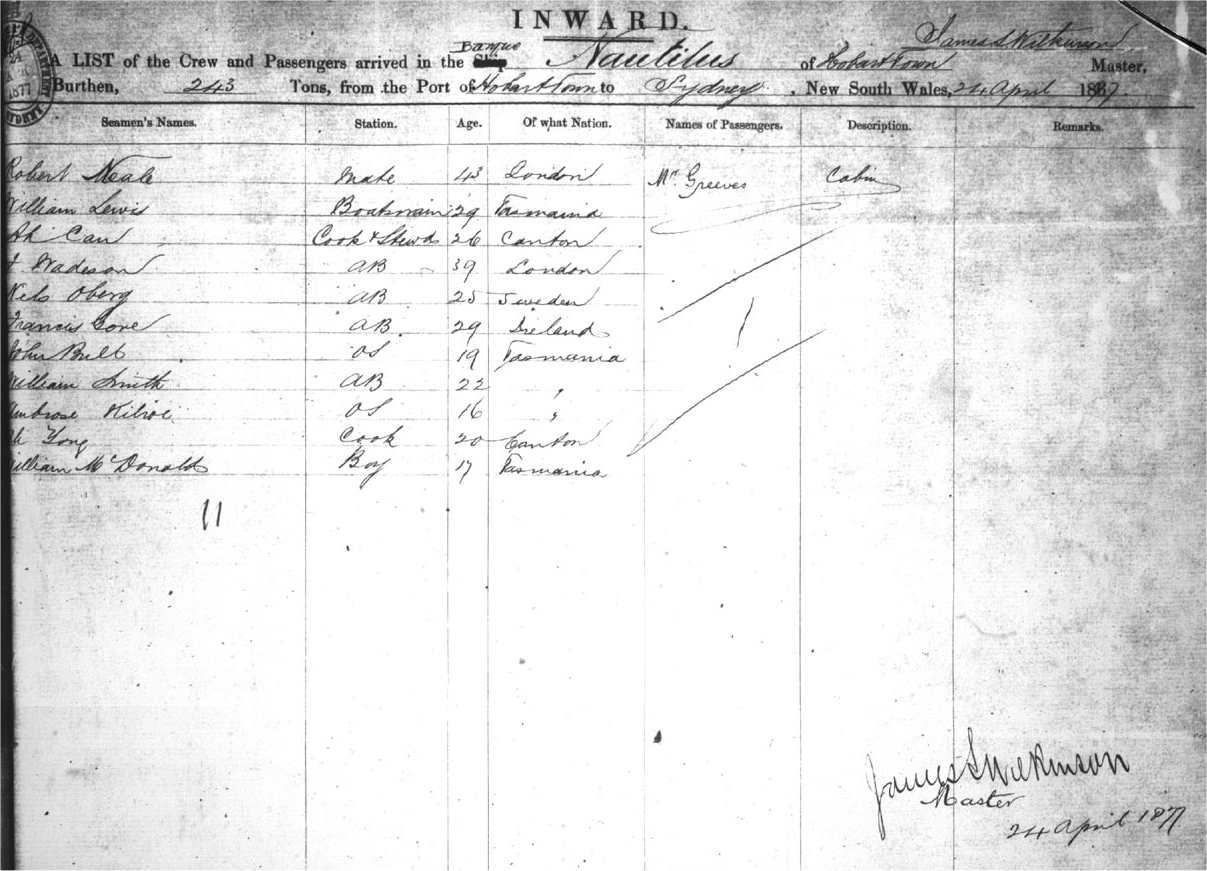 INWARD.
James S Wilkinson
Barque
A LIST of the Crew and Passengers arrived in the Ship Nautilus of Hobart Town Master,
Burthen, 243 Tons, from the Port of Hobart Town to Sydney, New South Wales, 24 April 1877.
Seamen's Names. Station. Age. Of what Nation. Names of Passengers. Description. Remarks.
Robert Neale Mate 43 London Mr Greeves Cabin
William Lewis Boatswain 29 Tasmania
Ah Can Cook & Stewd 26 Canton
Wadeson AB 39 London
Nels Oberg AB 25 Sweden
Francis Gore AB. 29 Ireland
John Bull OS 19 Tasmania
William Smith AB 22 "
Ambrose Kilroe OS 16 "
Ah Yong Cook 20 Canton
William McDonald Boy 17 Tasmania
11 1
James S Wilkinson
Master
24 April 1877